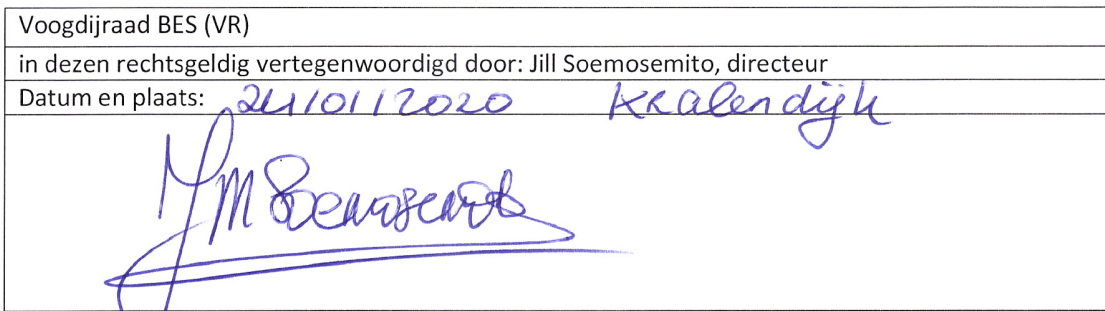 Voogdijraad BES (VR)
in dezen rechtsgeldig vertegenwoordigd door: Jill Soemosemito, directeur
Datum en plaats: 24/01/2020 Kralendijk
JM Soemosemito